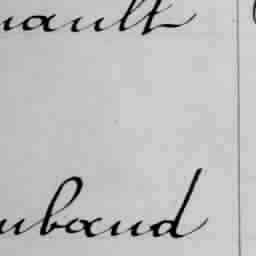 uault
ubaud